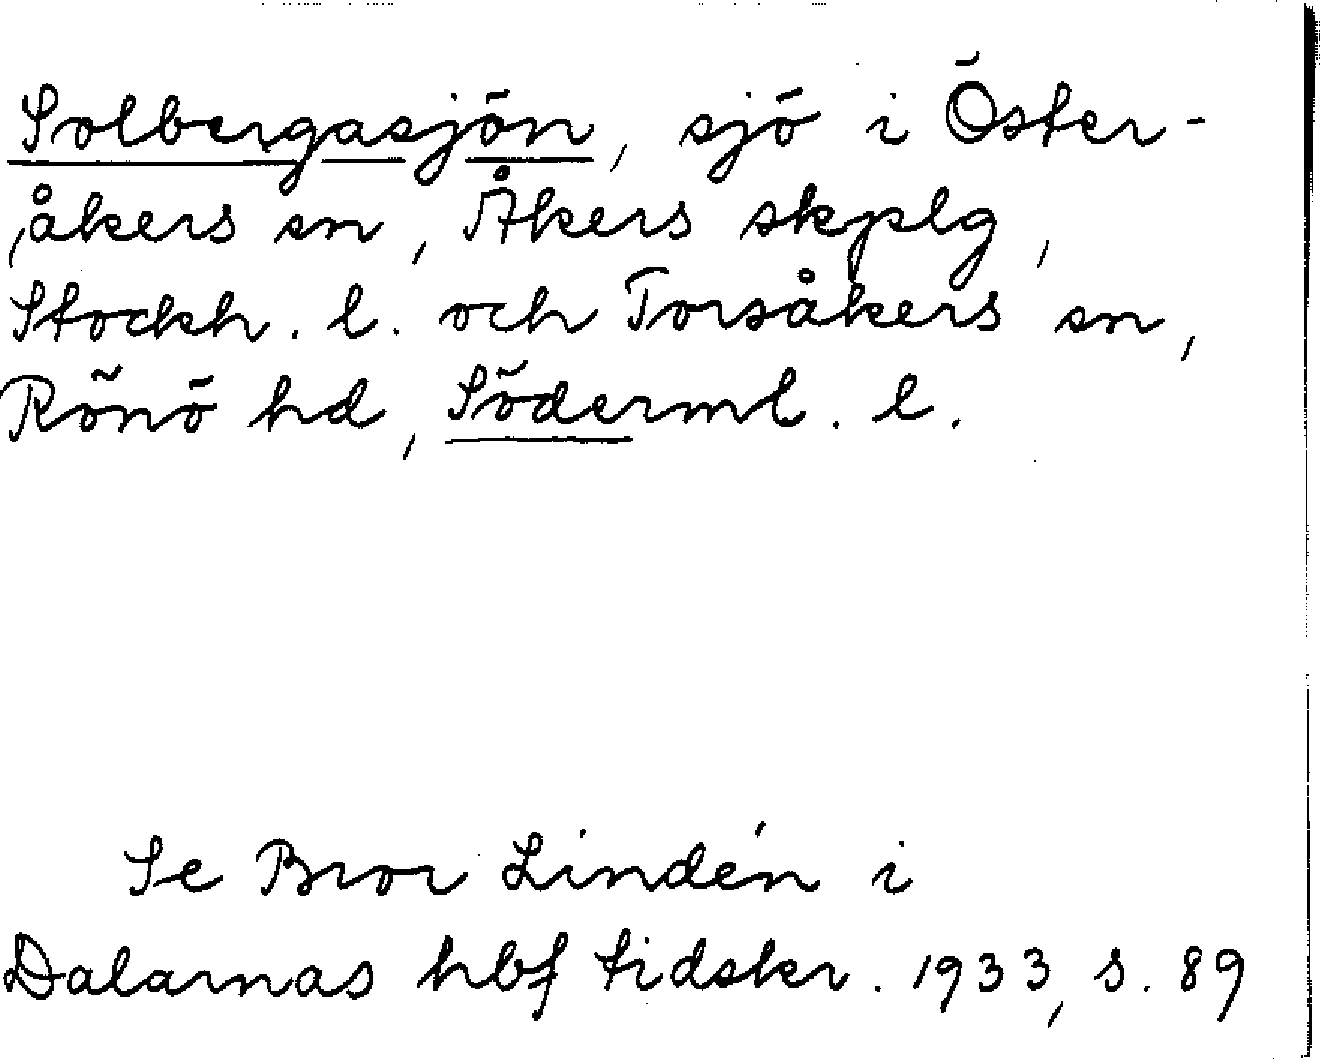 Solbergasjön, sjö i Öster-
åkers sn, Åkers skplg,
Stockh. l. och Torsåkers sn,
Rönö hd, Söderml. l.
Se Bror Lindén i
Dalarnas hbf tidskr. 1933, s. 89